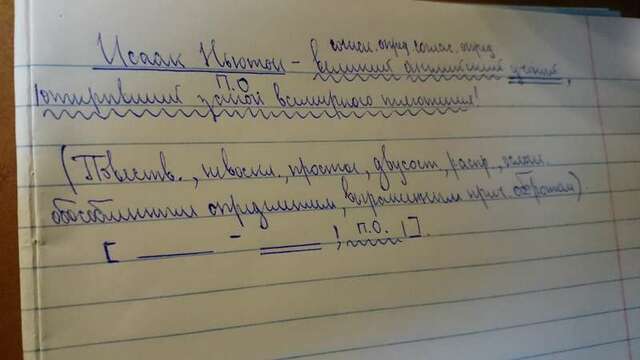 соглас. опред. соглас. опред.
Исаак Ньютон – великий английский ученый,
П.О
|открывший закон всемирного тяготения!
(Повеств., невоскл., простое, двусост., распр., ослож.
обособленным определением, выраженным прич. оборотом).
[ — = , |П.О.| ].